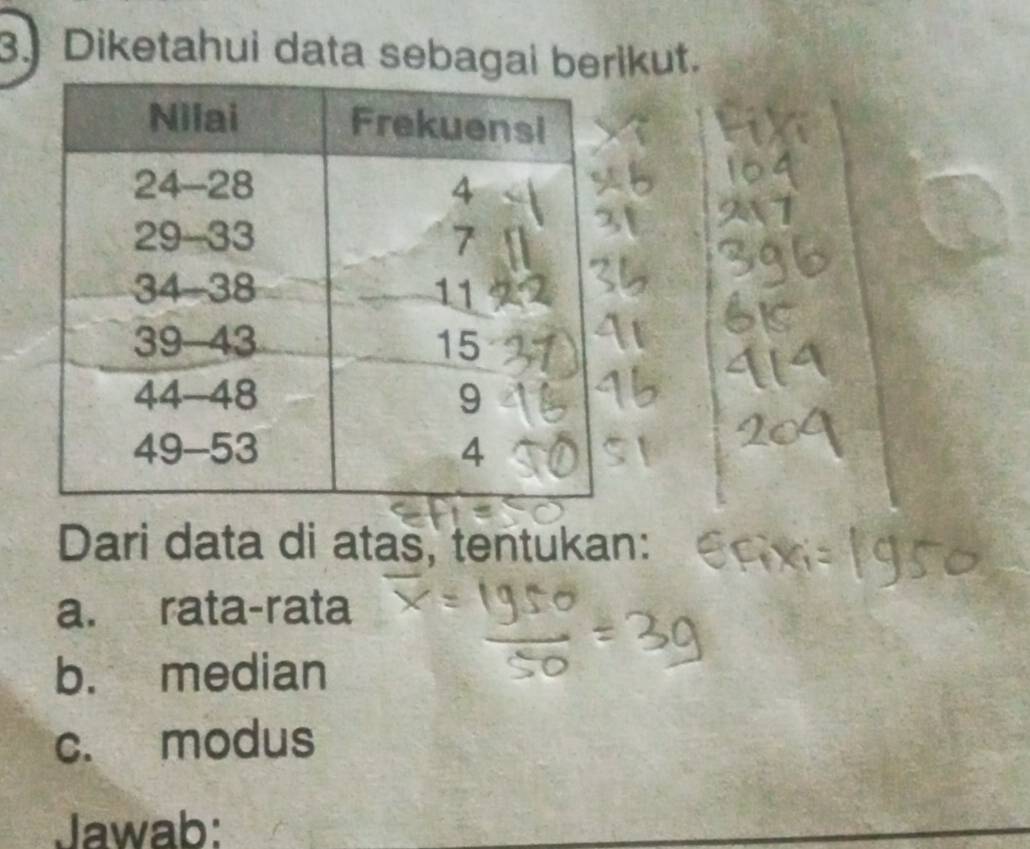 3. Diketahui data sebagai berikut.
Nilai Frekuensi xi fixi
24–28 4 4 26 104
29–33 7 11 31 217
34–38 11 22 36 396
39–43 15 37 41 615
44–48 9 46 46 414
49–53 4 50 51 204
Σfi = 50
Dari data di atas, tentukan: Σfixi = 1950
a. rata-rata x̄ = 1950/50 = 39
b. median
c. modus
Jawab: